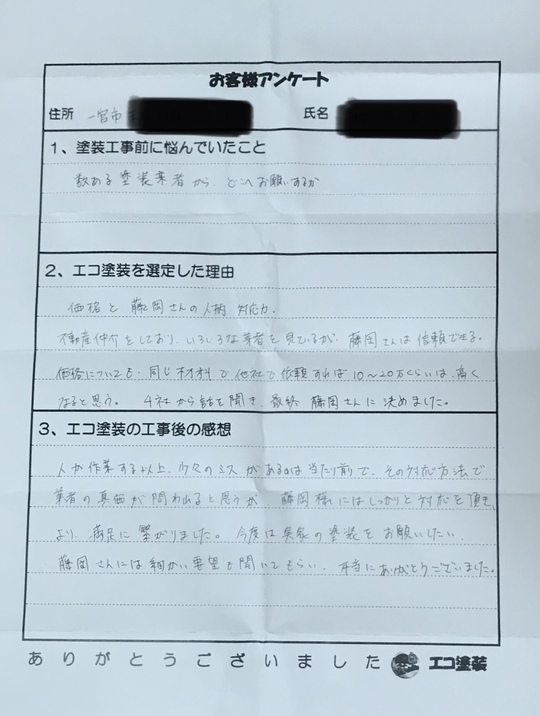 お客様アンケート
住所 一宮市 氏名
1、塗装工事前に悩んでいたこと
数ある塗装業者から どこへお願いするか
2、エコ塗装を選定した理由
価格と 藤岡さんの人柄 対応力.
不動産仲介をしており、いろいろな業者を見ているが 藤岡さんは信頼できる。
価格についても、同じ材料で他社で依頼すれば10〜20万くらいは、高く
なると思う。 4社から話を聞き、最終 藤岡さんに決めました。
3、エコ塗装の工事後の感想
人が作業する以上、少々のミスがあるのは当たり前で、その対応方法で
業者の真価が問われると思うが 藤岡様にはしっかりと対応を頂き、
より、満足に繋がりました。今度は実家の塗装をお願いしたい、
藤岡さんには細かい要望も聞いてもらい、本当にありがとうございました。
ありがとうございました エコ塗装